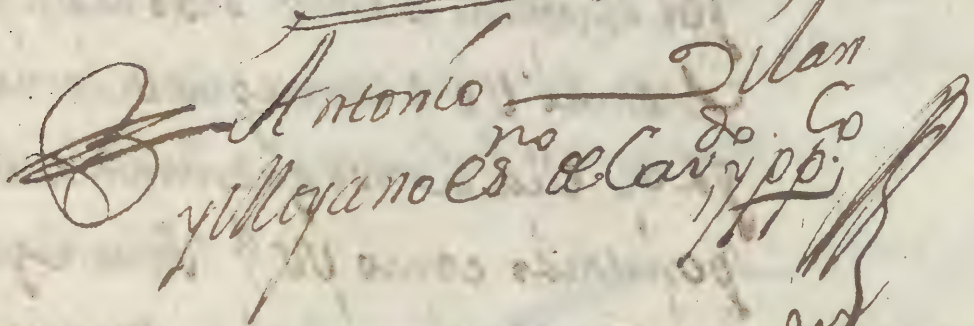 Antonio Dilan
y Moyano esno de Cavdo. y ppco